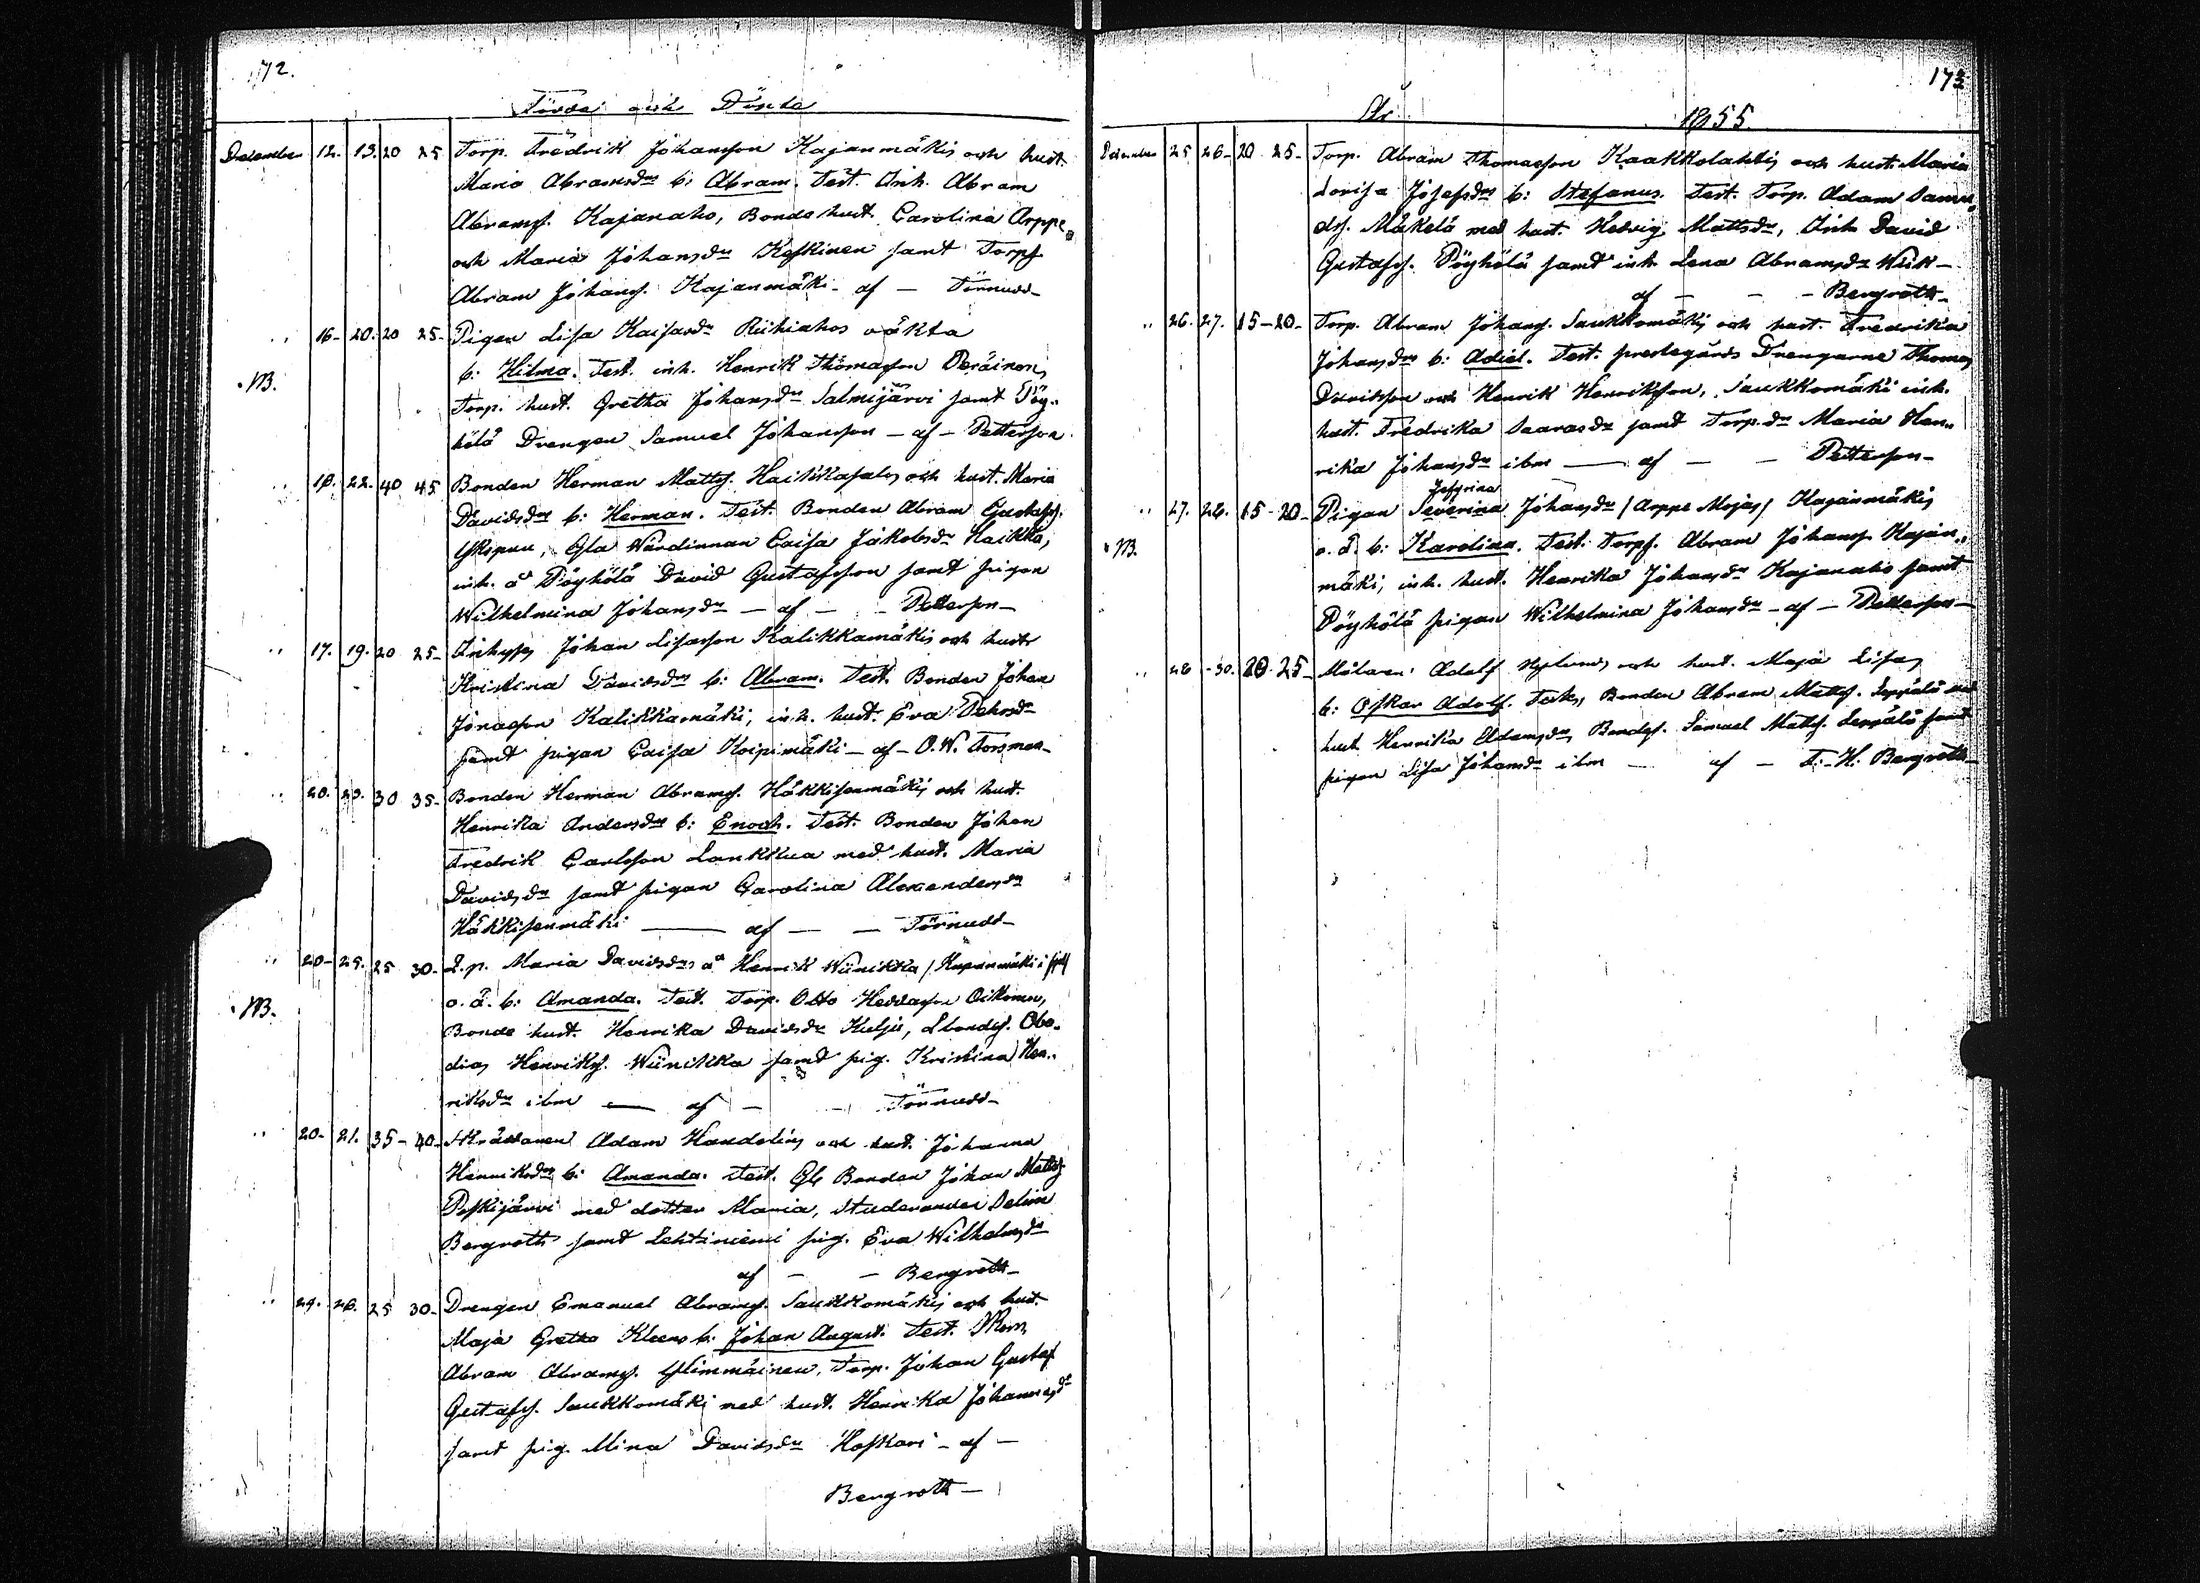 172.
Födde och Döpte
December 12. 13. 20 25 Torp. Fredrik Johansson Kajanmäkis och hust.
Maria Abramsdrs b: Abram. Test. Inh. Abram
Abramss. Kajanaho, Bonde hust. Carolina Arppe
och Maria Johansdr Koskinen samt Torps
Abram Johanss. Kajanmäki - af - Törnudd -
" 16 - 20. 20 25 - Pigan Lisa Kaisasdr Riihiahos oäkta
NB. b: Hilma. Test. inh. Henrik Thomasson Peräinen,
Torp. hust. Gretha Johansdr Salmijärvi samt Pöy-
hölä Drengen Samuel Johansson - af - Petterson
" 18. 22. 40 45 Bonden Herman Mattss. Haikkasalos och hust. Maria
Davidsdrs b: Herman. Test. Bonden Abram Gustafss.
Gla Wärdinnan Caisa Jakobsdr Haikka,
inh. å Pöyhölä David Gustafsson samt pigan
Wilhelmina Johansdr - af - - Petterson -
" 17. 19. 20 25 - Inhyss Johan Lisasson Kalikkamäkis och hustr
Kristina Davidsdrs b: Abram. Test. Bonden Johan
Jonasson Kalikkamäki, inh. hust. Eva Pehrsdr
samt pigan Caisa Koipimäki - af - O. W. Forsman -
" 20. 23. 30 35 - Bonden Herman Abramss. Häkkisenmäkis och hust.
Henrika Andersdrs b: Enoch. Test. Bonden Johan
Fredrik Carlsson Lankkua med hust. Maria
Davidsdr samt pigan Carolina Alexandersdr
Häkkisenmäki - af - - Törnudd -
" 20 - 25. 25 30 - L. p. Maria Davidsdrs å Henrik Wiinikka / Kupunmäki i
NB. o. ä. b: Amanda. Test. Torp. Otto Heddasson Oikonen,
Bonde hust. Henrika Davidsdr Kulju, Lbondes. Oba-
dias Henrikss. Wiinikka samt pig. Kristina Hen-
riksdr ibm - af - - Törnudd -
" 20 - 21. 35 - 40 - Skräddaren Adam Handolins och hust. Johanna
Henriksdrs b: Amanda. Test. Gl. Bonden Johan Mattss
Poskijärvi med dotter Maria, studeranden Delin
Bergroth samt Lehtiniemi pig. Eva Wilhelmsdr
af - - Bergroth -
" 24. 26. 25 30 - Drengen Emanuel Abramss. Saukkomäkis och hust.
Maja Gretha Kleens b: Johan August. Test.
Abram Abramss. Ylimmäinen, Torp. Johan Gustaf
Gustafss. Saukkomäki med hust. Henrika Johannesdr
samt pig. Mina Davidsdr Koskari - af -
Bergroth -
173
År 1855.
December 25 26 - 20 25 - Torp. Abram Thomasson Kaakkolahtis och hust. Maria
Lovisa Josefsdrs b: Stefanus. Test. Torp. Adam Samu-
elss. Mäkelä med hust. Hedvig Mattsdr, Inh. David
Gustafss. Pöyhölä samt inh. Lena Abramsdr Wiik -
af - - - Bergroth -
" 26. 27. 15 - 20 - Torp. Abram Johanss. Saukkomäkis och hust. Fredrika
Johansdrs b: Adiel. Test. prestegårds Drengarne Thomas
Davidsson och Henrik Henriksson, Saukkomäki inh.
hust. Fredrika Saarasdr samt Torp.dr Maria Hen-
rika Johansdr ibm - af - - Petterson -
Josefina
" 27. 28. 15 - 20 - Pigan Severina Johansdr / Arppe Mojas / Kajanmäkis
NB. o. ä. b: Karolina. Test. Torps. Abram Johanss. Kajan-
mäki, inh. hust. Henrika Johansdr Kajanaho samt
Pöyhölä pigan Wilhelmina Johansdr - af - Petterson -
" 28 - 30. 20 25 - Målaren Adolf och hust. Maja Lisas
b: Oskar Adolf. Testes, Bonden Abram Mattss. Seppälä med
hust. Henrika Adamsdr, Bondes. Samuel Mattss. Seppälä samt
pigan Lisa Johansdr ibm - af - F. H. Bergroth -